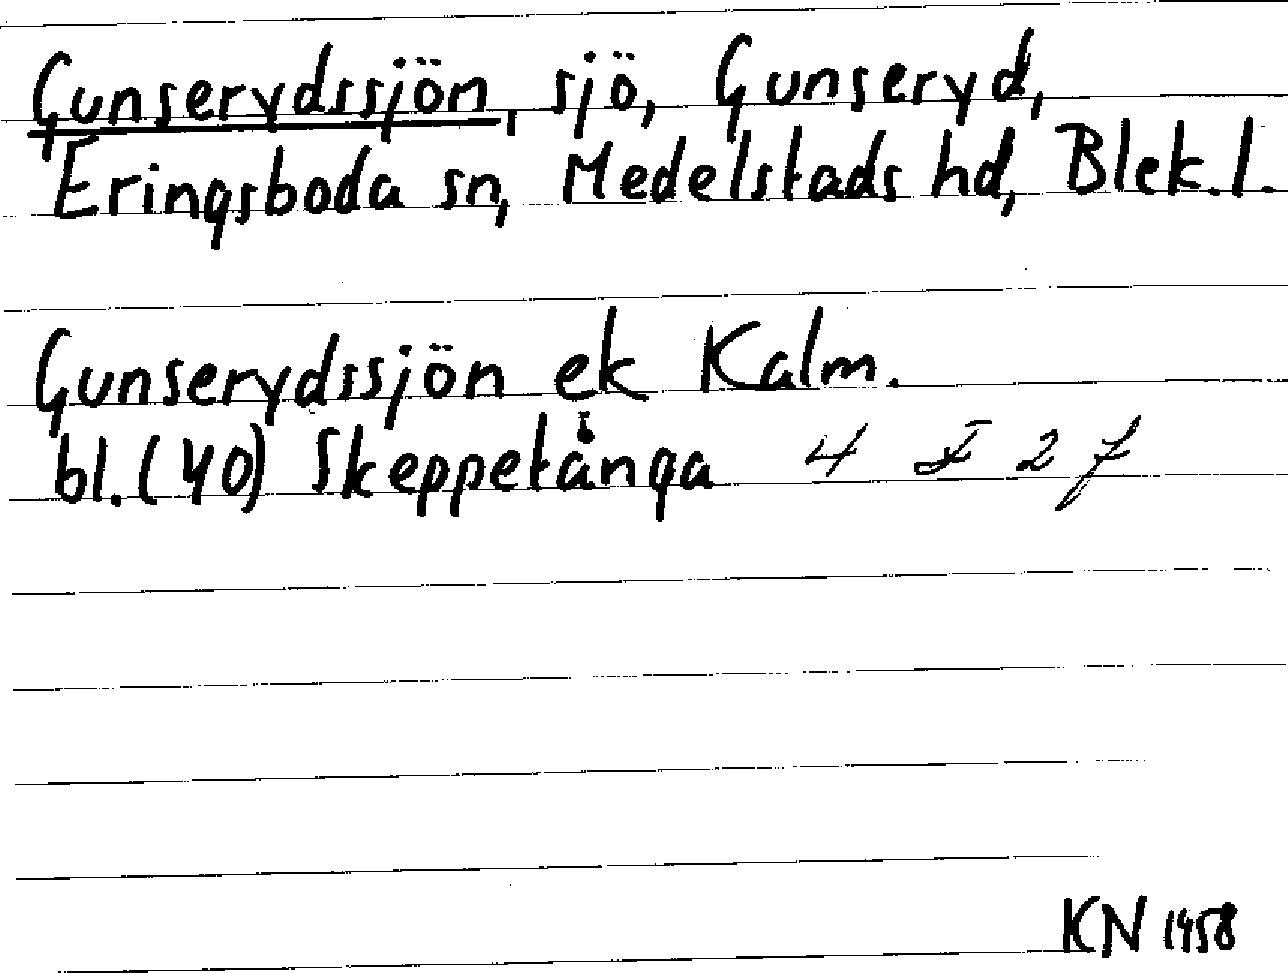 Gunserydssjön, sjö, Gunseryd,
Eringsboda sn, Medelstads hd, Blek. l.
Gunserydssjön ek Kalm.
bl. (40) Skeppetånga 4 F 2 f
KN 1958